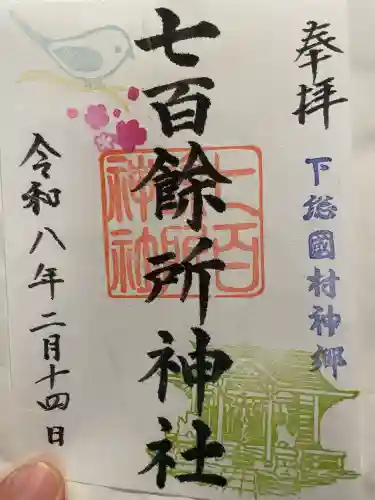 奉拝
下総國村神郷
七百餘所神社
七百
神社
令和八年二月十四日